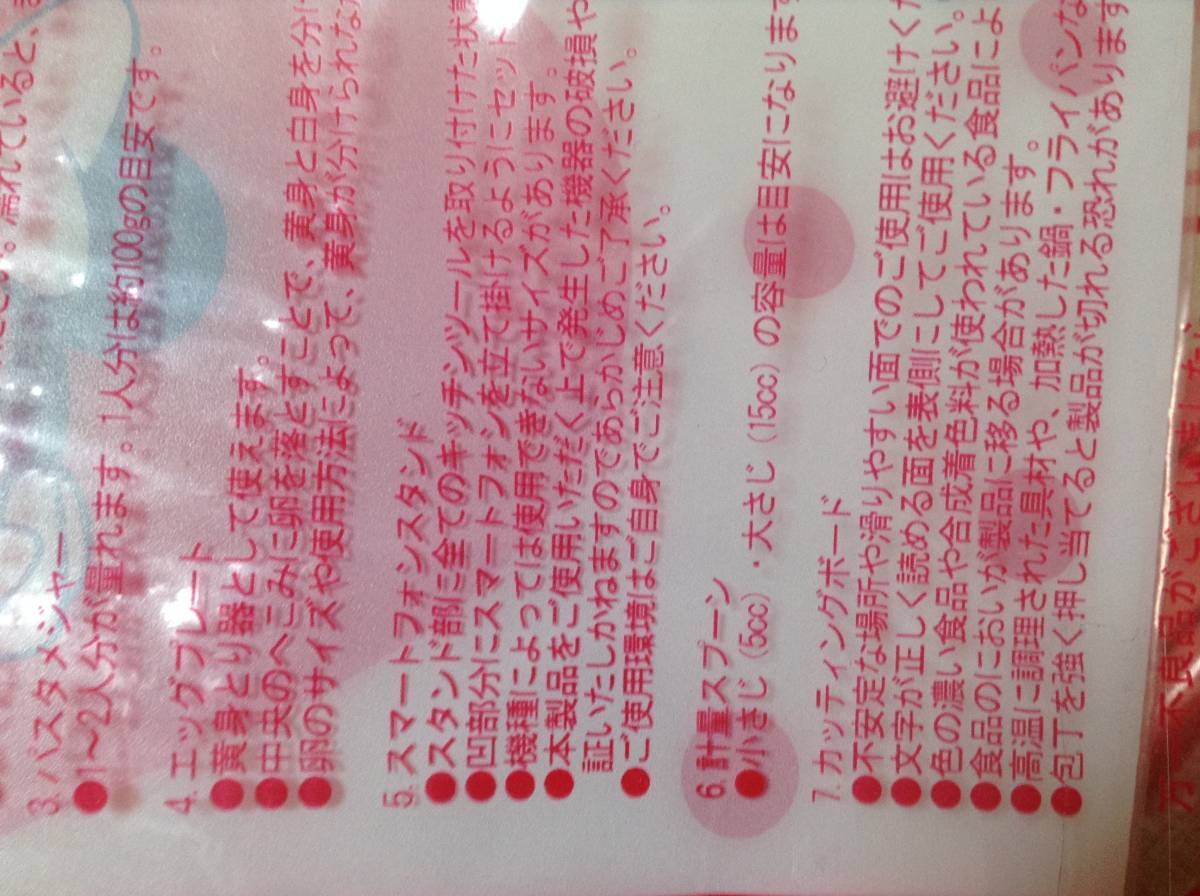 濡れていると、
3. パスタメジャー
●1～2人分が量れます。1人分は約100gの目安です。
4. エッグプレート
●黄身とり器として使えます。
●中央のへこみに卵を落とすことで、黄身と白身を分け
●卵のサイズや使用方法によって、黄身が分けられな
5. スマートフォンスタンド
●スタンド部に全てのキッチンツールを取り付けた状態
●凹部分にスマートフォンを立て掛けるようにセット
●機種によっては使用できないサイズがあります。
●本製品をご使用いただく上で発生した機器の破損や
証いたしかねますのであらかじめご了承ください。
●ご使用環境はご自身でご注意ください。
6. 計量スプーン
●小さじ（5cc）・大さじ（15cc）の容量は目安になります
7. カッティングボード
●不安定な場所や滑りやすい面でのご使用はお避けくだ
●文字が正しく読める面を表側にしてご使用ください。
●色の濃い食品や合成着色料が使われている食品によ
●食品のにおいが製品に移る場合があります。
●高温に調理された具材や、加熱した鍋・フライパンな
●包丁を強く押し当てると製品が切れる恐れがあります
万一不良品がございましたら